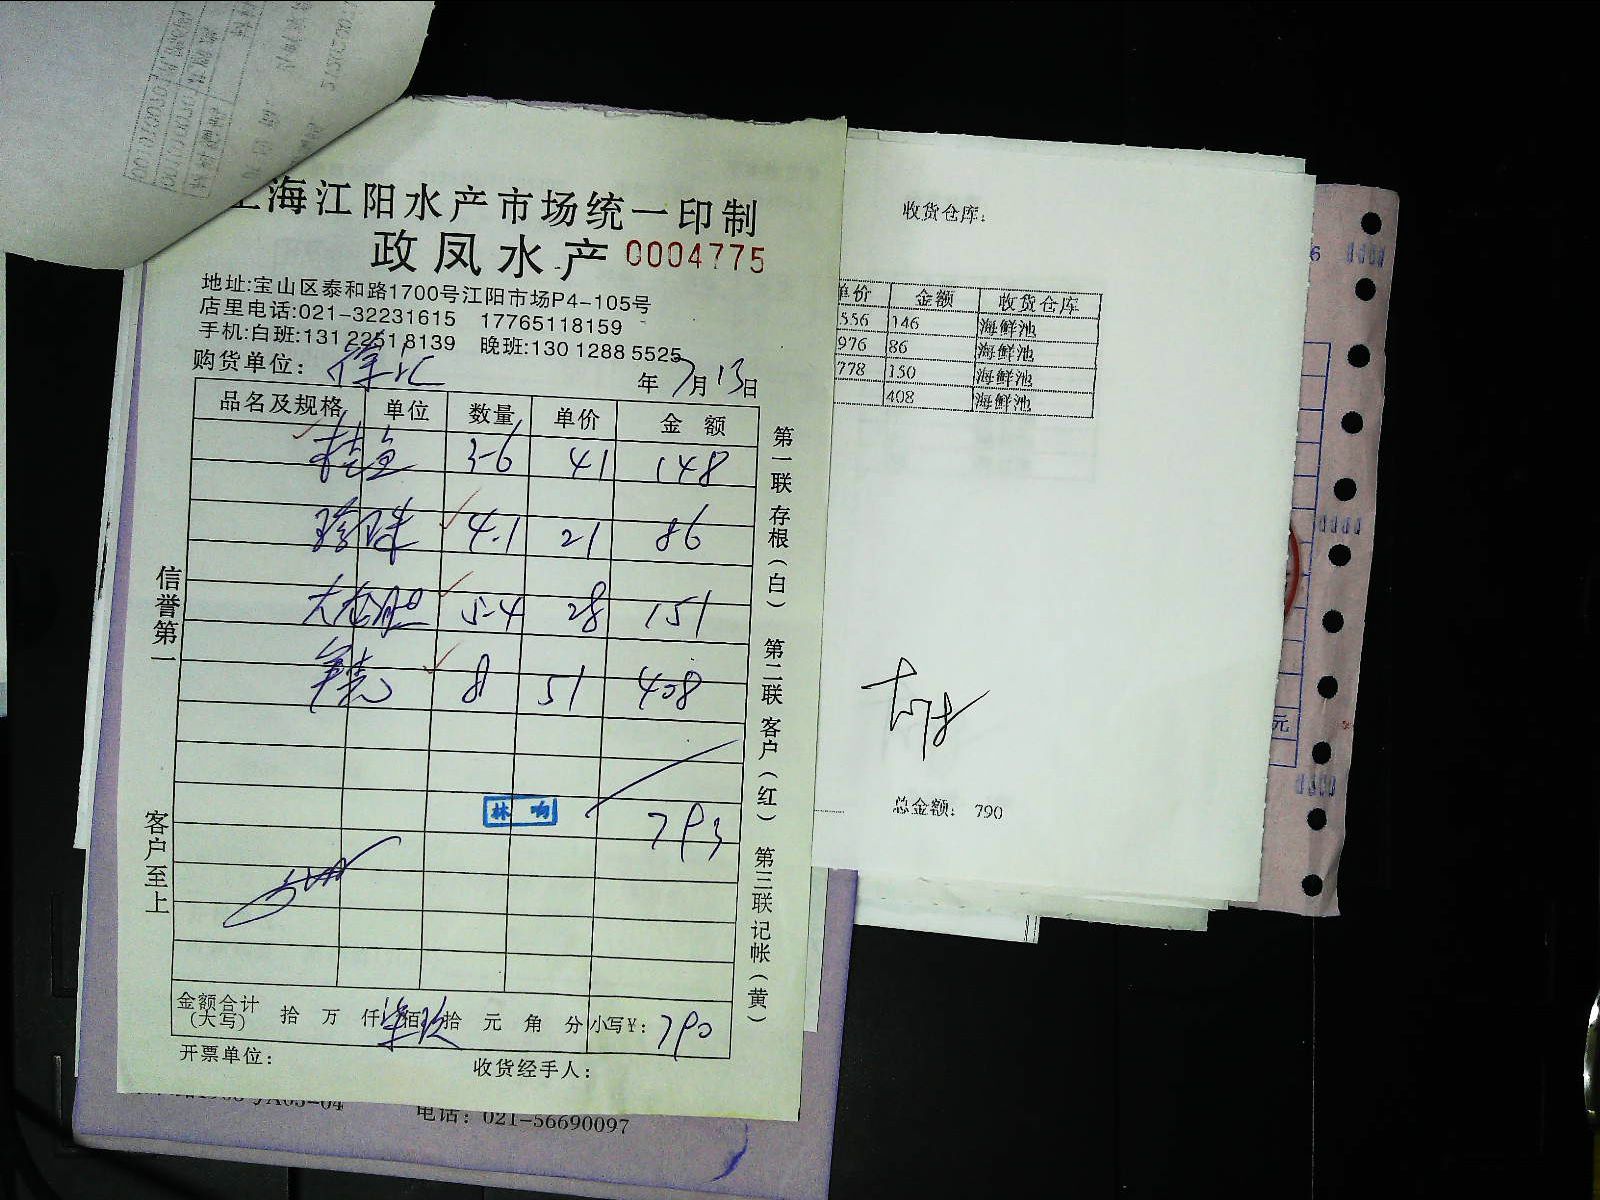 海江阳水产市场统一印制
政凤水产 0004775
地址:宝山区泰和路1700号江阳市场P4-105号
店里电话:021-32231615 17765118159
手机:白班:131 2251 8139 晚班:130 1288 5525
购货单位: 徐汇 年 7月13日
品名及规格 单位 数量 单价 金额
桂鱼 3-6 41 148
珍珠 4.1 21 86
大龙胆 5-4 28 151
8 51 408
林 响
793
金额合计(大写) 拾 万 仟 柒 佰 玖 拾 元 角 分 小写¥: 790
开票单位: 收货经手人:
信誉第一 客户至上
第一联 存根(白) 第二联 客户(红) 第三联 记帐(黄)
电话: 021-56690097
收货仓库:
单价 金额 收货仓库
556 146 海鲜池
976 86 海鲜池
778 150 海鲜池
408 海鲜池
总金额: 790
6
元